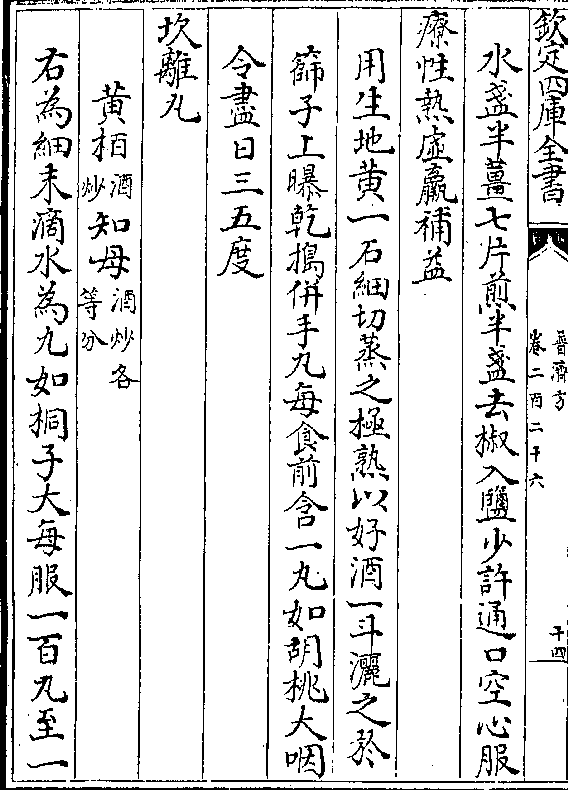 欽定四庫全書
普濟方
卷二百二十六
十四
水盞半薑七片煎半盞去椒入鹽少許通口空心服
療性熱虛羸補益
用生地黄一石細切蒸之極熟以好酒一斗灑之於
篩子上曝乾搗併手丸每食前含一丸如胡桃大咽
令盡日三五度
坎離丸
黄栢酒炒知母酒炒各等分
右為細末滴水為丸如桐子大每服一百丸至一